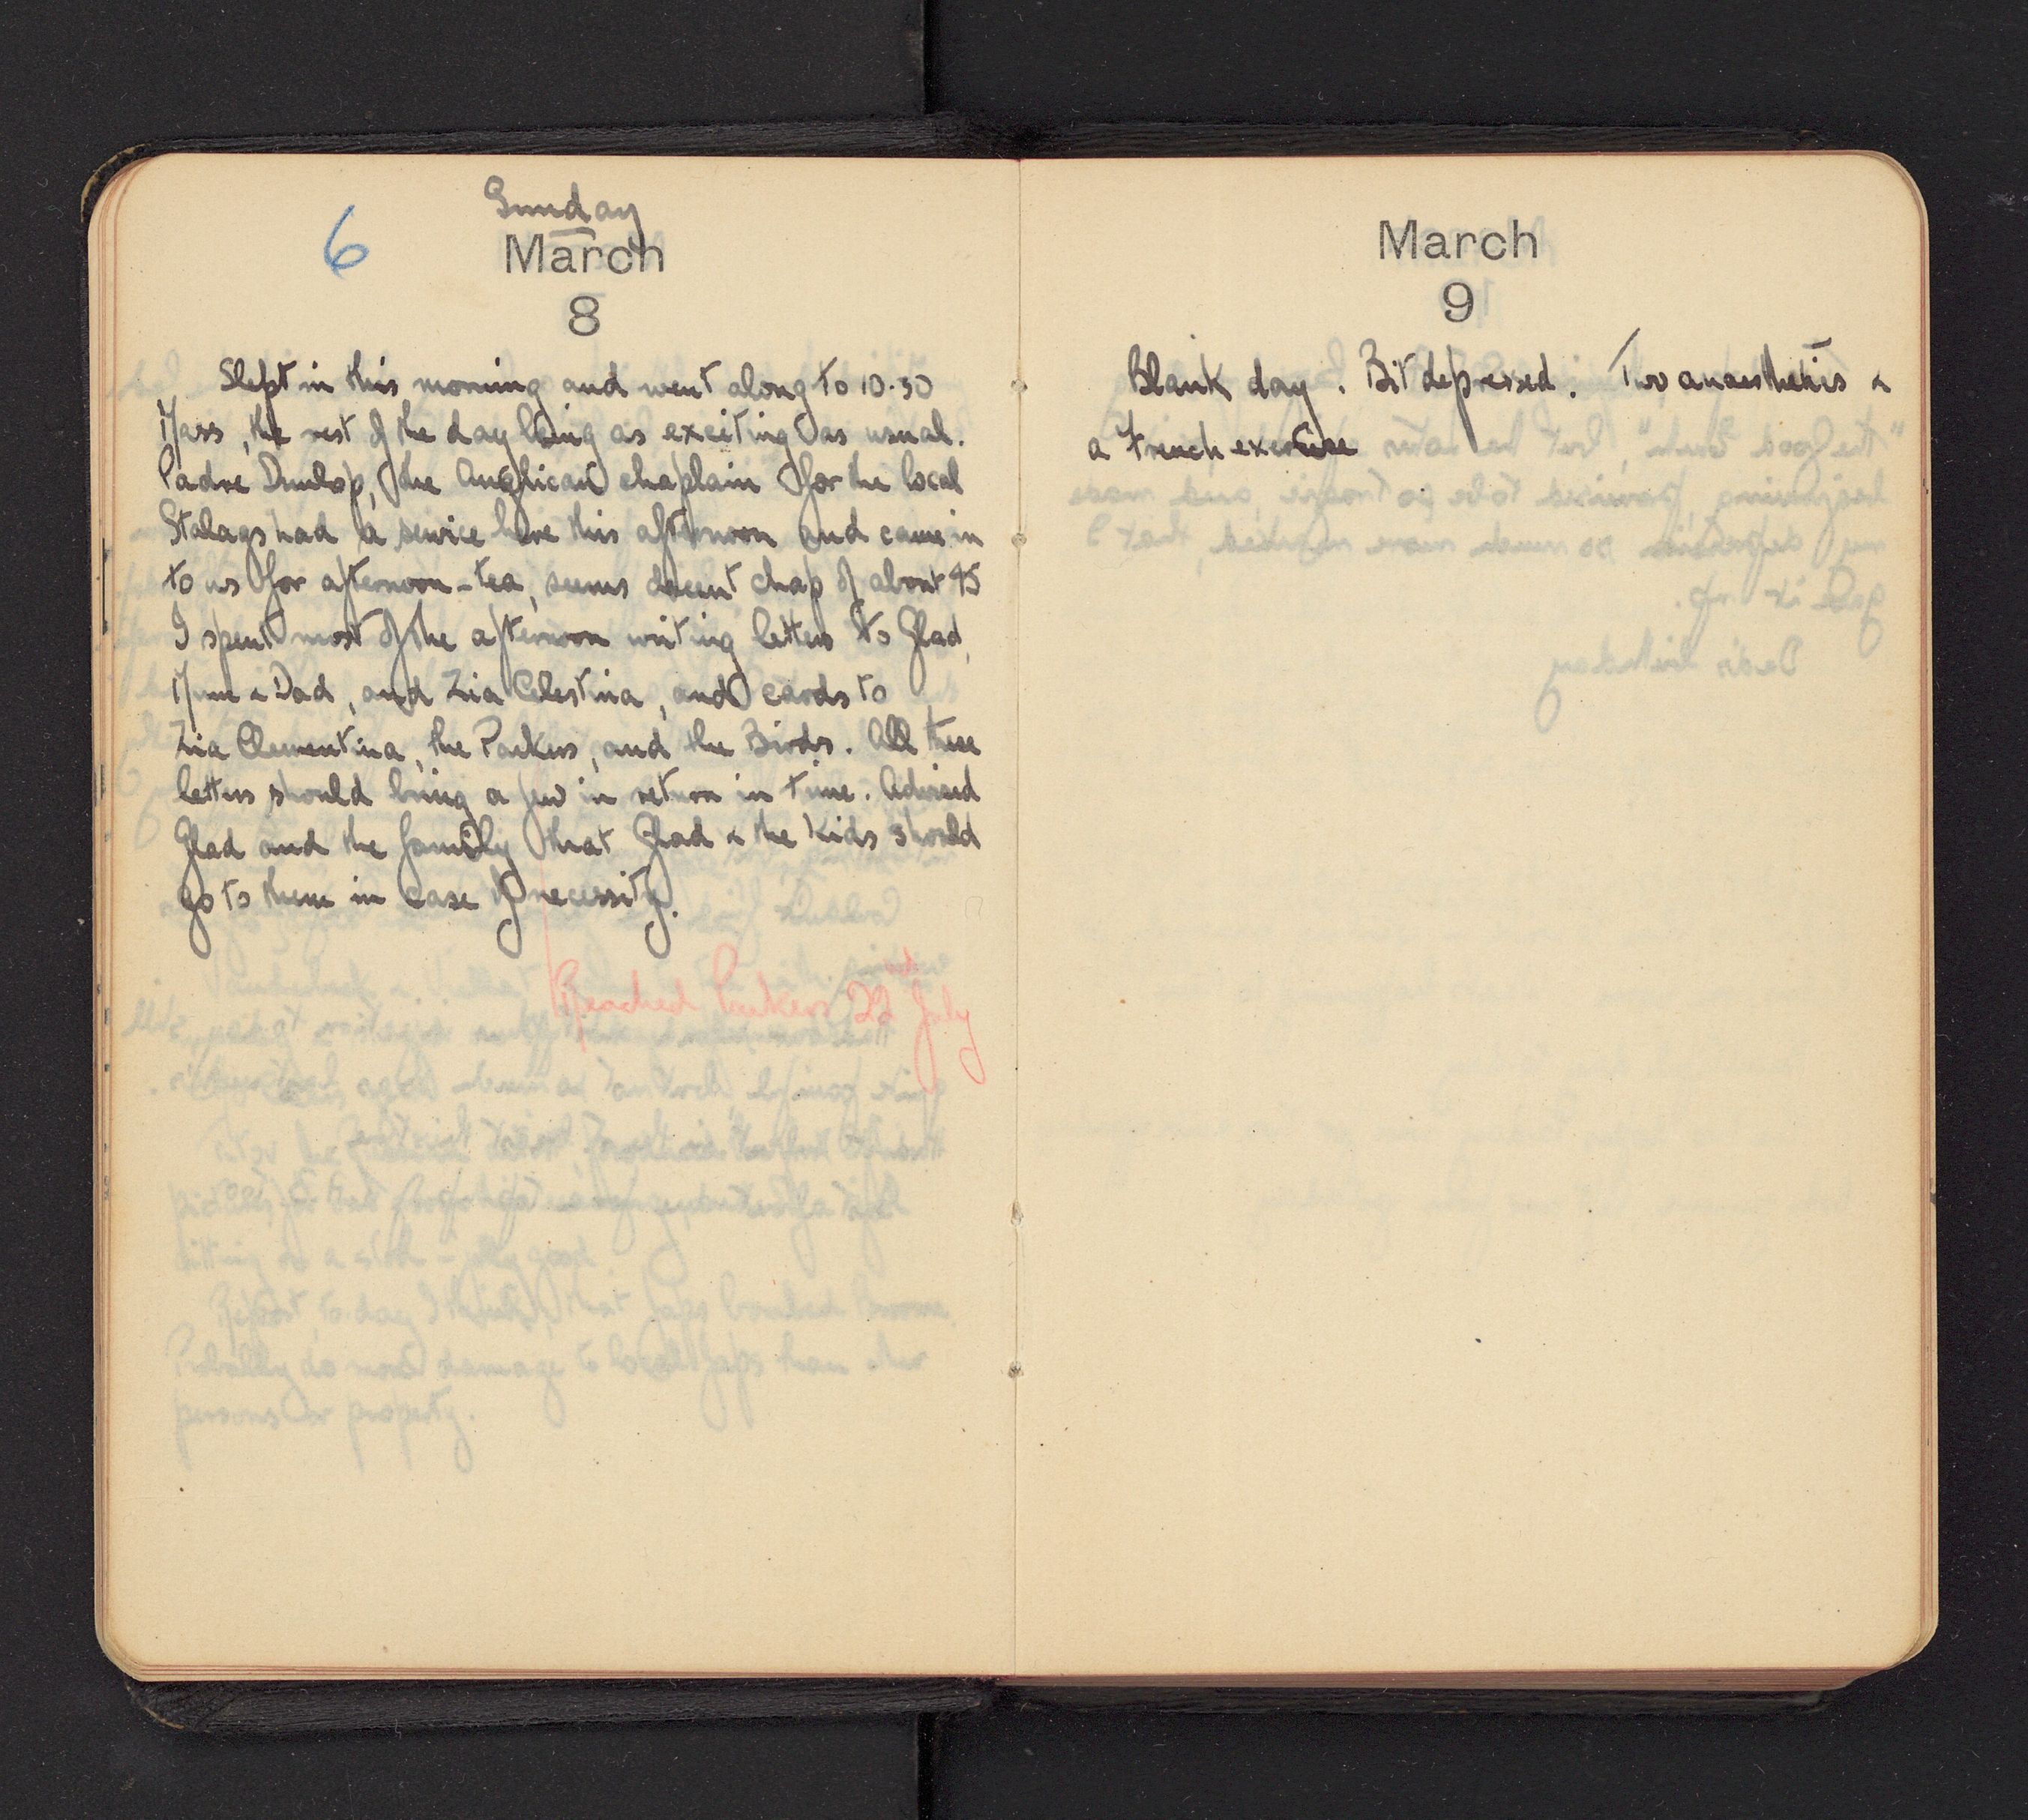 Sunday
6
March
8
Slept in this morning and went along to 10.30
Mass, the rest of the day being as exciting as usual.
Padre Dunlop, the Anglican chaplain for the local
Stalags had a service here this afternoon and came in
to us for afternoon-tea, seems decent chap of about 45
I spent most of the afternoon writing letters to Glad,
Mum & Dad, and Zia Celestina, and cards to
Zia Clementina, the Parkers, and the Birds. All these
letters should bring a few in return in time. Advised
Glad and the family that Glad & the kids should
go to them in case of necessity.
Reached Parkers 22nd July
March
9
Blank day. Bit depressed. Two anaesthetics &
a French exercise